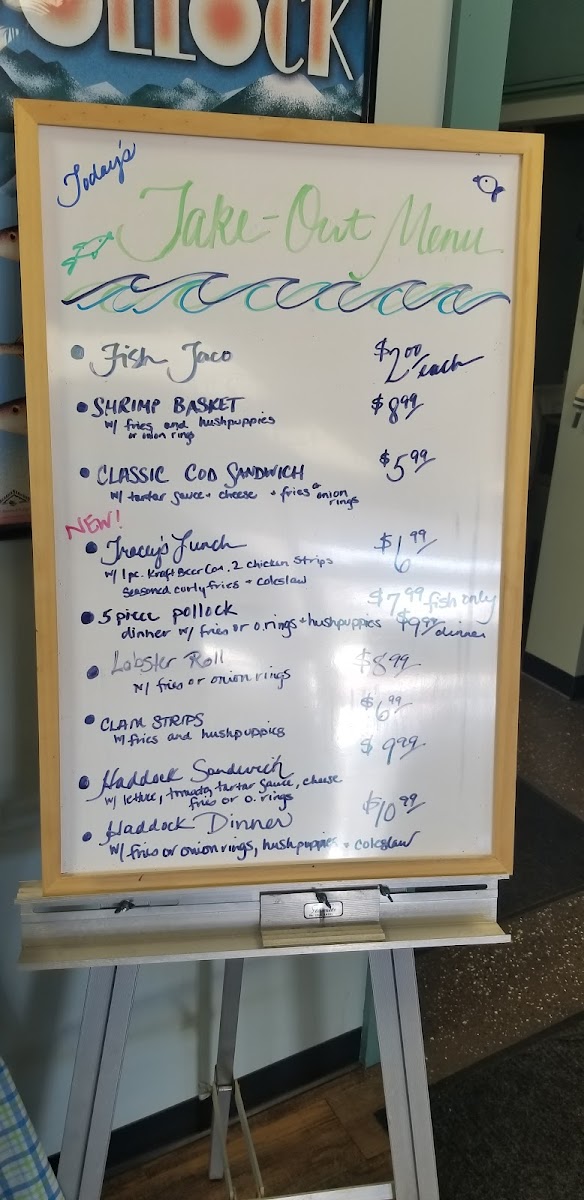 POLLOCK
Today's
Take-Out Menu
• Fish Taco $2.00/each
• SHRIMP BASKET $8.99
w/ fries and hushpuppies
or onion rings
• CLASSIC COD SANDWICH $5.99
w/ tartar sauce + cheese + fries or onion
rings
NEW!
• Tracy's Lunch $6.99
w/ 1 pc. Kraft Beer Cod, 2 chicken strips
seasoned curly fries + coleslaw
$7.99 fish only
• 5 piece pollock
dinner w/ fries or o.rings + hushpuppies $9.99 dinner
• Lobster Roll $8.99
w/ fries or onion rings
• CLAM STRIPS $6.99
w/ fries and hushpuppies
• Haddock Sandwich $9.99
w/ lettuce, tomato, tartar sauce, cheese
fries or o. rings
• Haddock Dinner $10.99
w/ fries or onion rings, hushpuppies + coleslaw